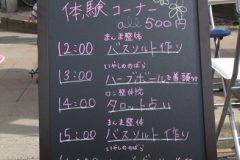 体験コーナー
all 500円
まんま整体
12:00 バスソルト作り
いやしののばら
13:00 ハーブボール
ロン整体院
14:00 タロット占い
まんま整体
15:00 バスソルト作り
いやしののばら